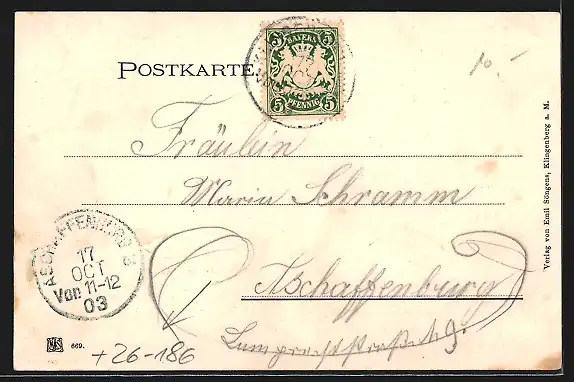 10.-
POSTKARTE
5 BAYERN 5
5 PFENNIG 5
Fräulein
Maria Schramm
Aschaffenburg
Lamprechtstraße 49.
ASCHAFFENBURG 2
17
OCT
Von 11-12
03
669.
+26-186
Verlag von Emil Söngens, Klingenberg a. M.